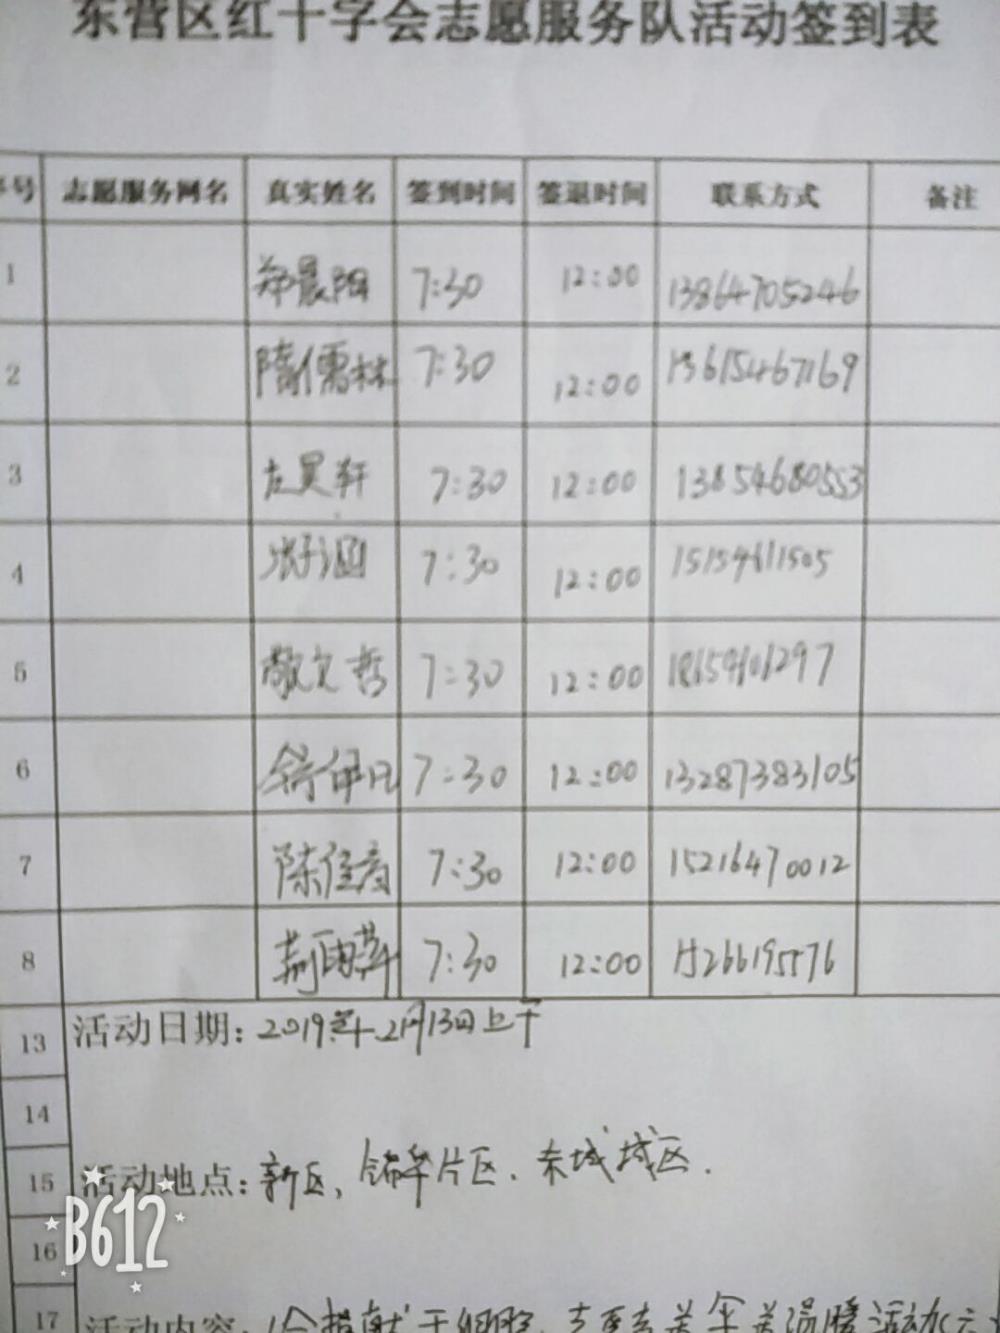 东营区红十字会志愿服务队活动签到表
序号 志愿服务网名 真实姓名 签到时间 签退时间 联系方式 备注
1 郑晨阳 7:30 12:00 13864705246
2 隋儒林 7:30 12:00 13615467169
3 左昊轩 7:30 12:00 13854680553
4 张子涵 7:30 12:00 15154611505
5 敬文哲 7:30 12:00 18659101297
6 伊凡 7:30 12:00 13287383105
7 陈佳 7:30 12:00 15216470012
8 荊雨萍 7:30 12:00 15266195576
13 活动日期:2019年2月13日上午
14
15 活动地点:新区,锦华片区.东城城区.
16
17 活动内容:
B612